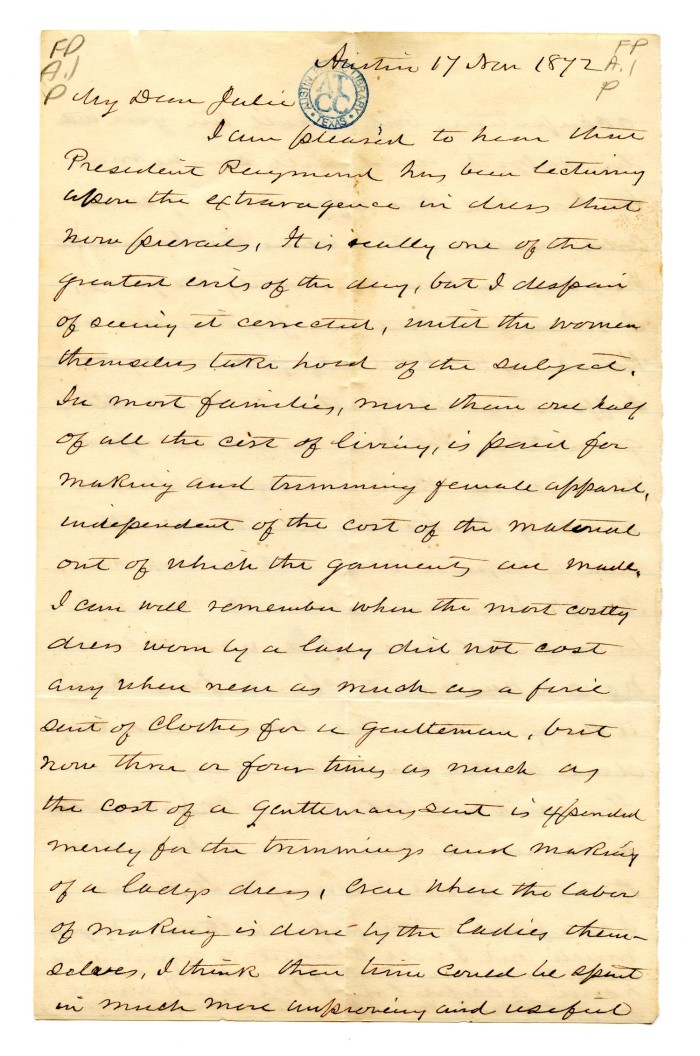 FP
A.1
P
FP
A.1
P
Austin 17 Nov 1872
AUSTIN LIBRARY
ATCC
TEXAS
My Dear Julie
I am pleased to hear that
President Raymond has been lecturing
upon the extravagence in dress that
now prevails, It is really one of the
greatest evils of the day, but I despair
of seeing it corrected, until the women
themselves take hold of the subject.
In most families, more than one half
of all the cost of living, is paid for
making and trimming female apparel,
independent of the cost of the material
out of which the garments are made.
I can well remember when the most costly
dress worn by a lady did not cost
any when near as much as a fine
suit of clothes for a gentleman, but
now three or four times as much as
the cost of a gentlemans suit is expended
merely for the trimmings and making
of a ladys dress, Even where the labor
of making is done by the ladies them-
selves, I think their time could be spent
in much more improving and useful